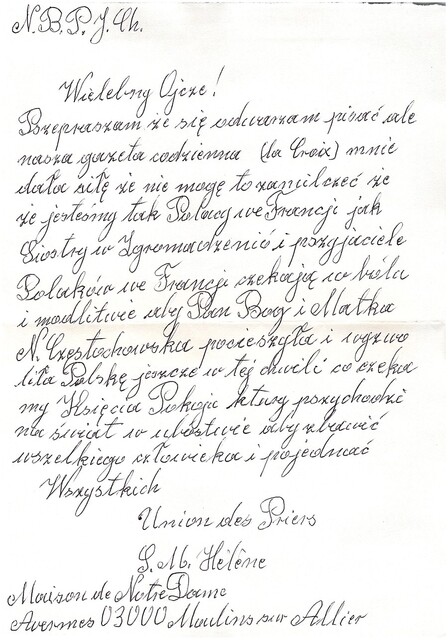 N.B.P.J.Ch.
Wielebny Ojcze!
Przepraszam że się odważam pisać ale
nasza gazeta codzienna (la Croix) mnie
dała siłę że nie mogę to zamilczeć że
że jesteśmy tak Polacy we Francji jak
Siostry w Zgromadzenió i przyjaciele
Polaków we Francji czekają w bólu
i modlitwie aby Pan Bóg i Matka
N. Częstochowska pocieszyła i wyzwo
liła Polskę jeszcze w tej chwili co czeka
my Księcia Pokoju który przychodzi
na świat w ubóstwie aby zbawić
wszelkiego człowieka i pojednać
Wszystkich
Union des Priers
S. M. Hélène
Maison de Notre Dame
Avermes 03000 Moulins sur Allier